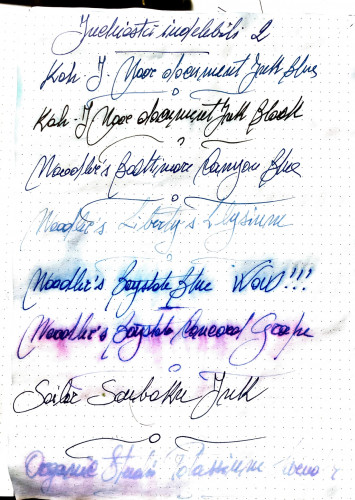 Inchiostri indelebili 2
Koh-I-Noor document Ink Blue
Koh-I Noor document Ink Black
Noodler's Baltimore Canyon Blue
Noodler's Liberty's Elysium
Noodler's Baystate Blue WOW!!!
Noodler's Baystate Concord Grape
Sailor Souboku Ink
Organic Studio